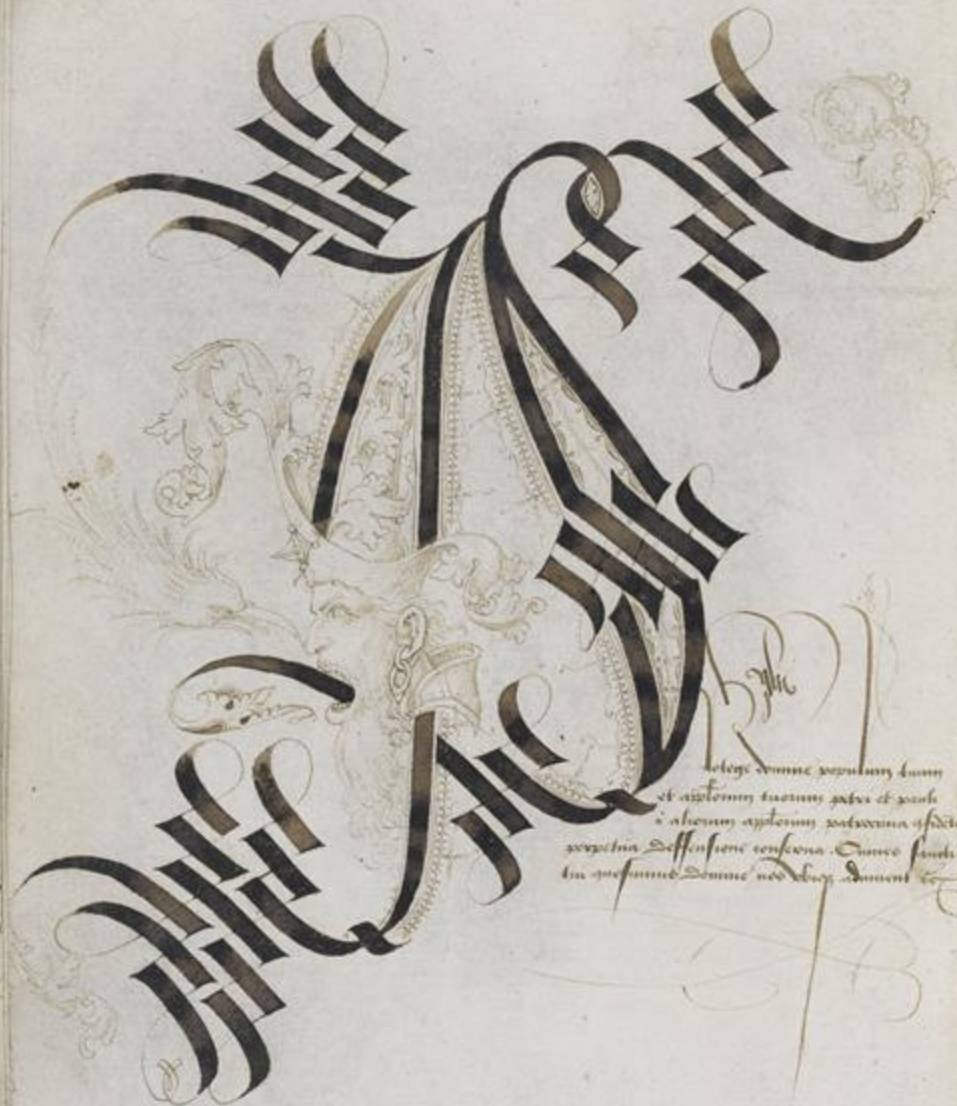 P
otege domine populum tuum
et ap̅lorum tuorum petri et pauli
i aliorum ap̅lorum patrocinia
perpetua deffensione conserva. Omnes sancti
tui quesumus domine nos ubiq adiuvent